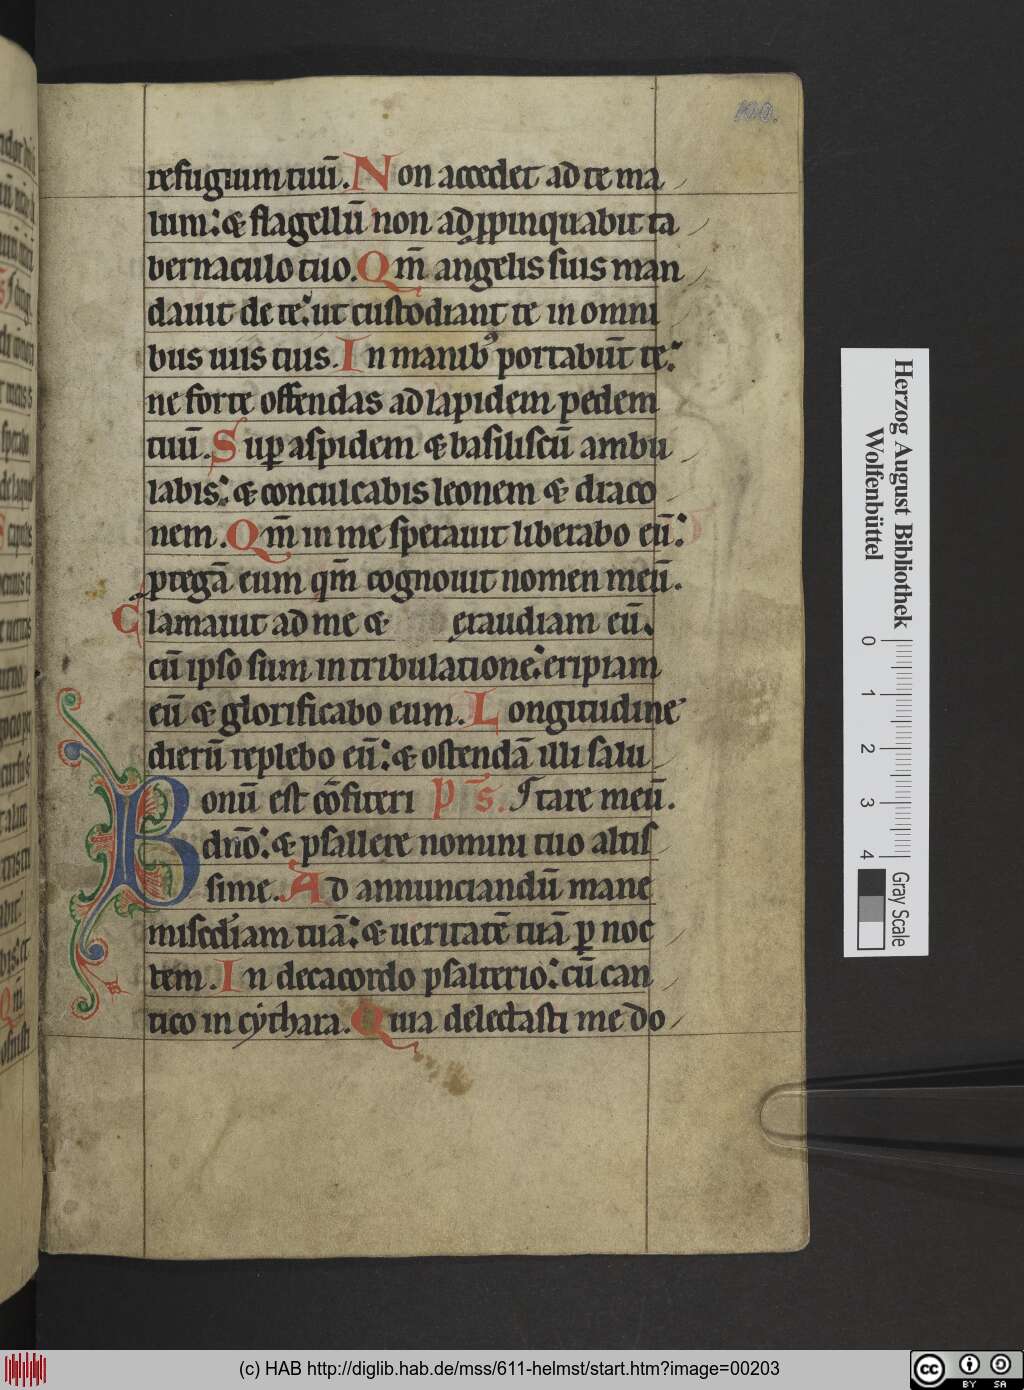 100.
refugium tuū. Non accedet ad te ma
lum: & flagellū non adꝓpinquabit ta
bernaculo tuo. Qm̄ angelis suis man
dauit de te: ut custodiant te in omni
bus uiis tuis. In manibꝰ portabūt te:
ne forte offendas ad lapidem pedem
tuū. Suꝑ aspidem & basiliscū ambu
labis: & conculcabis leonem & draco
nem. Qm̄ in me sperauit liberabo eū:
ꝓtegā eum qm̄ cognouit nomen meū.
Clamauit ad me & exaudiam eū.
cū ipso sum in tribulatione: eripiam
eū & glorificabo eum. Longitudine
dierū replebo eū: & ostendā illi salu
Bonū est cōfiteri Ps̄. tare meū.
dn̄o: & psallere nomini tuo altis
sime. Ad annunciandū mane
mīscd'iam tuā: & ueritatē tuā ꝑ noc
tem. In decacordo psalterio: cū can
tico in cẏthara. Quia delectasti me do
Herzog August Bibliothek
Wolfenbüttel
0 1 2 3 4
Gray Scale
(c) HAB http://diglib.hab.de/mss/611-helmst/start.htm?image=00203
cc BY SA